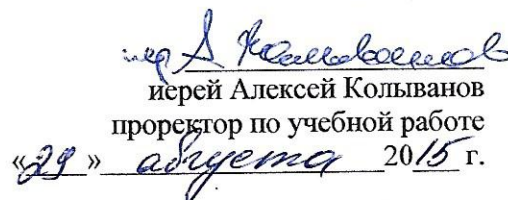 иер А Колыванов
иерей Алексей Колыванов
проректор по учебной работе
«29» августа 2015 г.